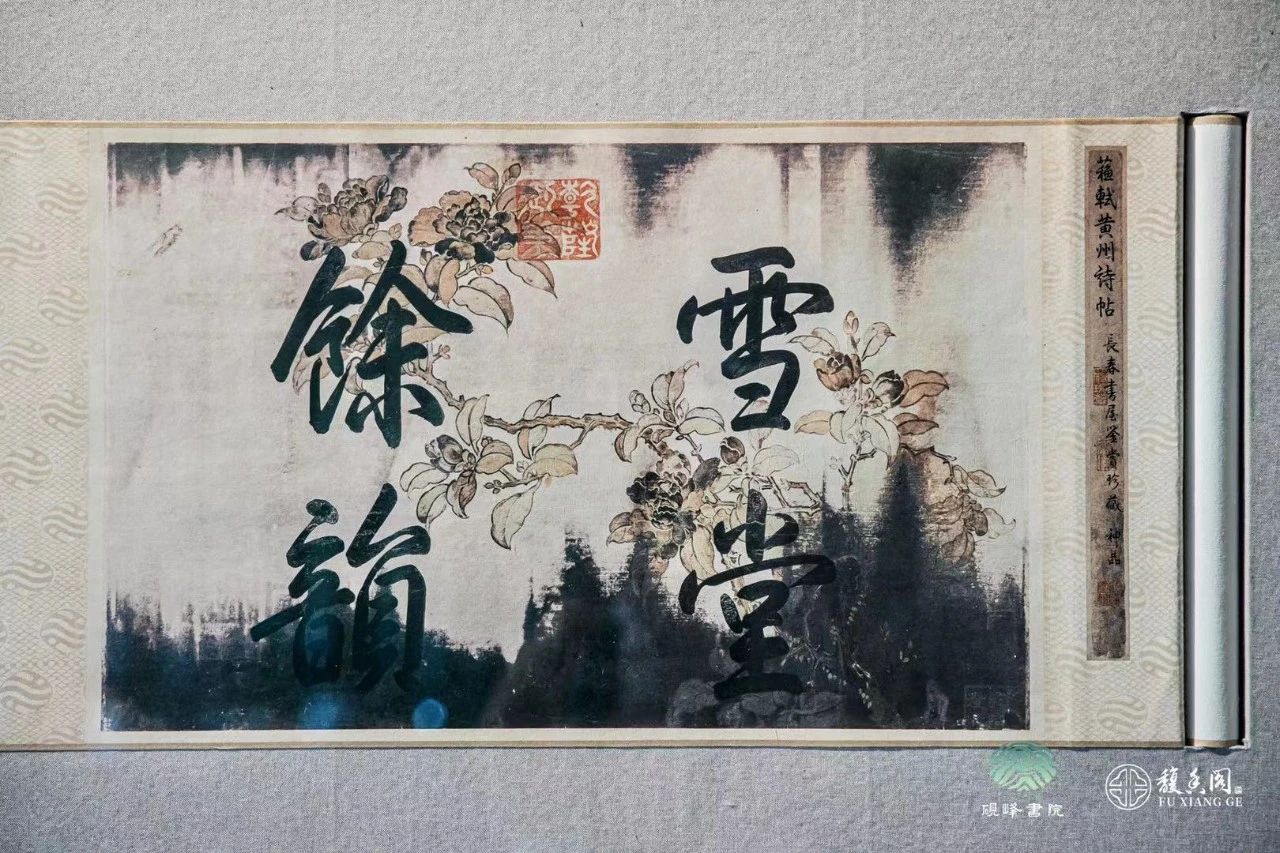 雪堂
餘韻
蘓軾黄州詩帖 長春書屋鉴賞珍藏 神品
硯峰書院
馥香阁
FU XIANG GE